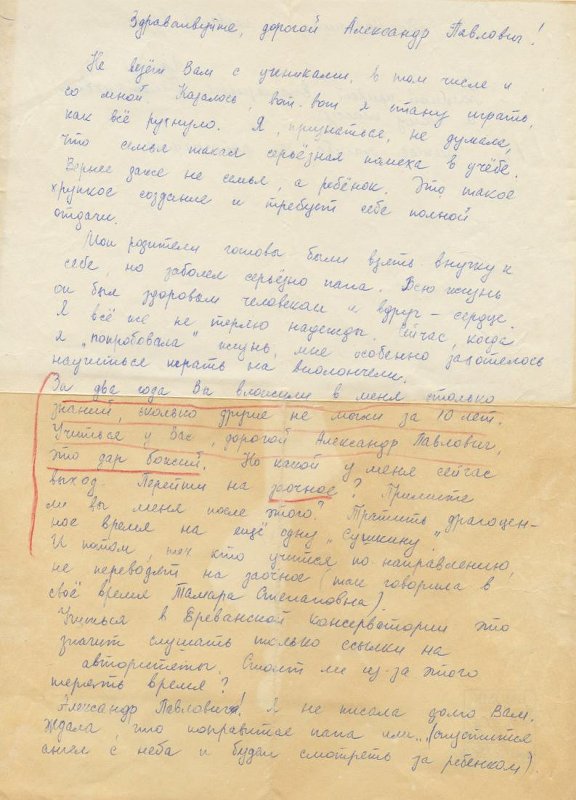 Здравствуйте, дорогой Александр Павлович!
Не везёт Вам с учениками, в том числе и
со мной. Казалось, вот-вот я стану играть,
как всё рухнуло. Я, признаться, не думала,
что семья такая серьёзная помеха в учёбе.
Вернее даже не семья, а ребёнок. Это такое
хрупкое создание и требует себе полной
отдачи.
Мои родители готовы были взять внучку к
себе, но заболел серьёзно папа. Всю жизнь
он был здоровым человеком и вдруг - сердце.
Я всё же не теряю надежды. Сейчас, когда
я "попробовала" жизнь, мне особенно захотелось
научиться играть на виолончели.
За два года Вы вложили в меня столько
знаний, сколько другие не могли за 10 лет.
Учиться у Вас, дорогой Александр Павлович,
это дар божий. Но какой у меня сейчас
выход. Перейти на заочное? Примите
ли вы меня после этого? Тратить драгоцен-
ное время на ещё одну "Сушкину".
И потом, тех кто учится по направлению,
не переводят на заочное (так говорила в
своё время Тамара Степановна).
Учиться в Ереванской консерватории это
значит слушать только ссылки на
авторитеты. Стоит ли из-за этого
терять время?
Александр Павлович! Я не писала долго Вам.
Ждала, что поправится папа или (спустится
ангел с неба и будет смотреть за ребёнком).